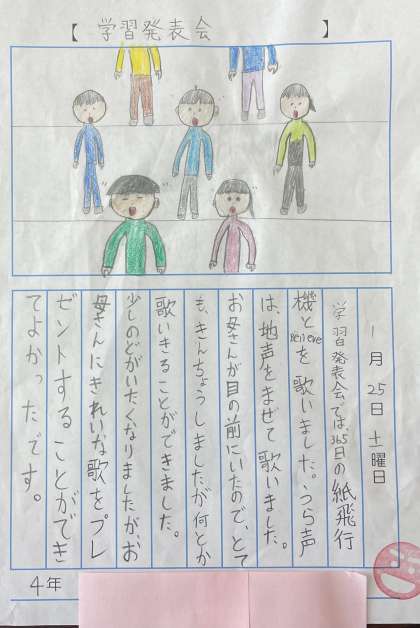 【 学習発表会 】
1月25日土曜日
学習発表会では、365日の紙飛行
機とBelieveを歌いました。うら声
は、地声をまぜて歌いました。
お母さんが目の前にいたので、とて
も、きんちょうしましたが何とか
歌いきることができました。
少しのどがいたくなりましたが、お
母さんにきれいな歌をプレ
ゼントすることができ
てよかったです。
4年